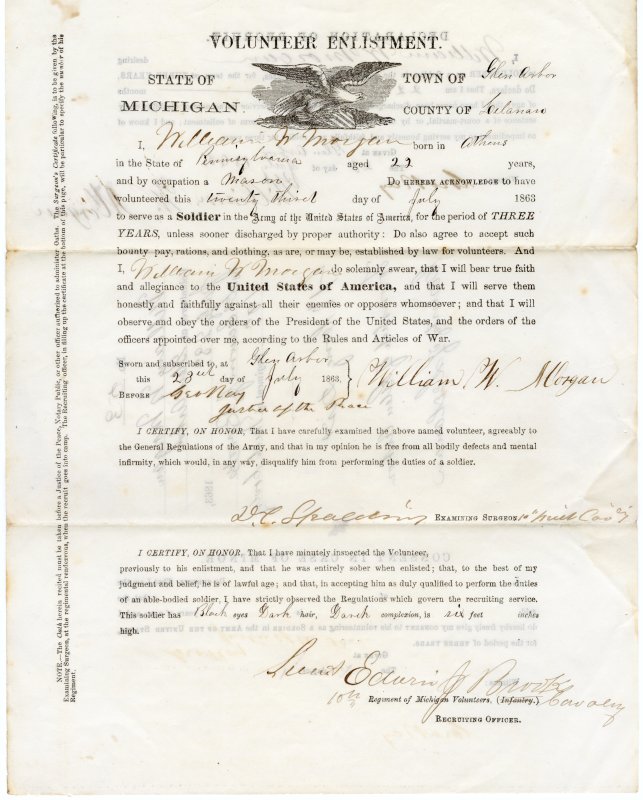 VOLUNTEER ENLISTMENT.
STATE OF
MICHIGAN.
TOWN OF Glen Arbor
COUNTY OF Lelanaw
I, William W Morgan born in Athens
in the State of Pennsylvania aged 22 years,
and by occupation a Mason Do HEREBY ACKNOWLEDGE to have
volunteered this twenty third day of July 1863
to serve as a Soldier in the Army of the United States of America, for the period of THREE
YEARS, unless sooner discharged by proper authority: Do also agree to accept such
bounty, pay, rations, and clothing, as are, or may be, established by law for volunteers. And
I, William W Morgan do solemnly swear, that I will bear true faith
and allegiance to the United States of America, and that I will serve them
honestly and faithfully against all their enemies or opposers whomsoever; and that I will
observe and obey the orders of the President of the United States, and the orders of the
officers appointed over me, according to the Rules and Articles of War.
Sworn and subscribed to, at Glen Arbor
this 23rd day of July 1863,
BEFORE Geo Ray
Justice of the Peace
William W. Morgan
I CERTIFY, ON HONOR, That I have carefully examined the above named volunteer, agreeably to
the General Regulations of the Army, and that in my opinion he is free from all bodily defects and mental
infirmity, which would, in any way, disqualify him from performing the duties of a soldier.
D. C. Spalding EXAMINING SURGEON 10" Mich Cav'y
I CERTIFY, ON HONOR, That I have minutely inspected the Volunteer,
previously to his enlistment, and that he was entirely sober when enlisted; that, to the best of my
judgment and belief, he is of lawful age; and that, in accepting him as duly qualified to perform the duties
of an able-bodied soldier, I have strictly observed the Regulations which govern the recruiting service.
This soldier has Black eyes Dark hair, Darck complexion, is six feet inches
high.
Lieut Edwin J Brooks
10th Regiment of Michigan Volunteers, (Infantry.) Cavalry
RECRUITING OFFICER.
NOTE.—The Oath herein recited must be taken before a Justice of the Peace, Notary Public, or other officer authorized to administer Oaths. The Surgeon's Certificate following, is to be given by the
Examining Surgeon, at the regimental rendezvous, when the recruit goes into camp. The Recruiting officer, in filling up the certificate at the bottom of this page, will be particular to specify the number of his
Regiment.